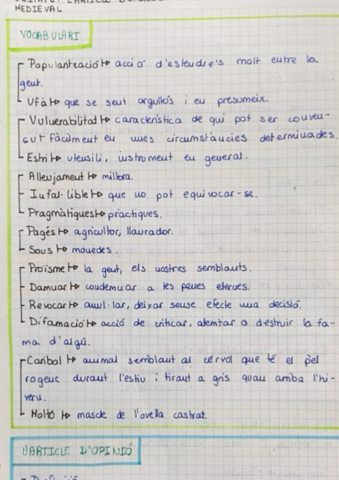 MEDIEVAL
VOCABULARI
Popularització↦ acció d'estendre's molt entre la
gent.
Ufà↦ que se sent orgullós i en presumeix.
Vulnerabilitat↦ característica de qui pot ser conven-
çut fàcilment en unes circumstàncies determinades.
Estri↦ utensili, instrument en general.
Alleujament↦ millora.
Infal·lible↦ que no pot equivocar-se.
Pragmàtiques↦ pràctiques.
Pagès↦ agricultor, llaurador.
Sous↦ monedes.
Proïsme↦ la gent, els nostres semblants.
Damnar↦ condemnar a les penes eternes.
Revocar↦ anul·lar, deixar sense efecte una decisió.
Difamació↦ acció de criticar, atemtar o destruir la fa-
ma d'algú.
Caribol↦ animal semblant al cérvol que té el pèl
rogenc durant l'estiu i tirant a gris quan arriba l'hi-
vern.
Moltó↦ mascle de l'ovella castrat.
L'ARTICLE D'OPINIÓ